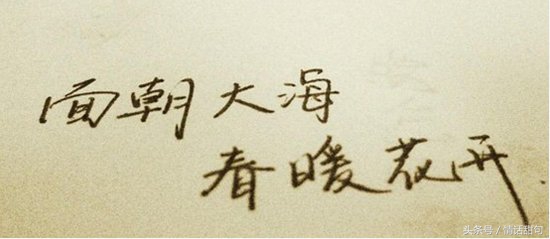 面朝大海
春暖花开.
头条号 / 情话甜句